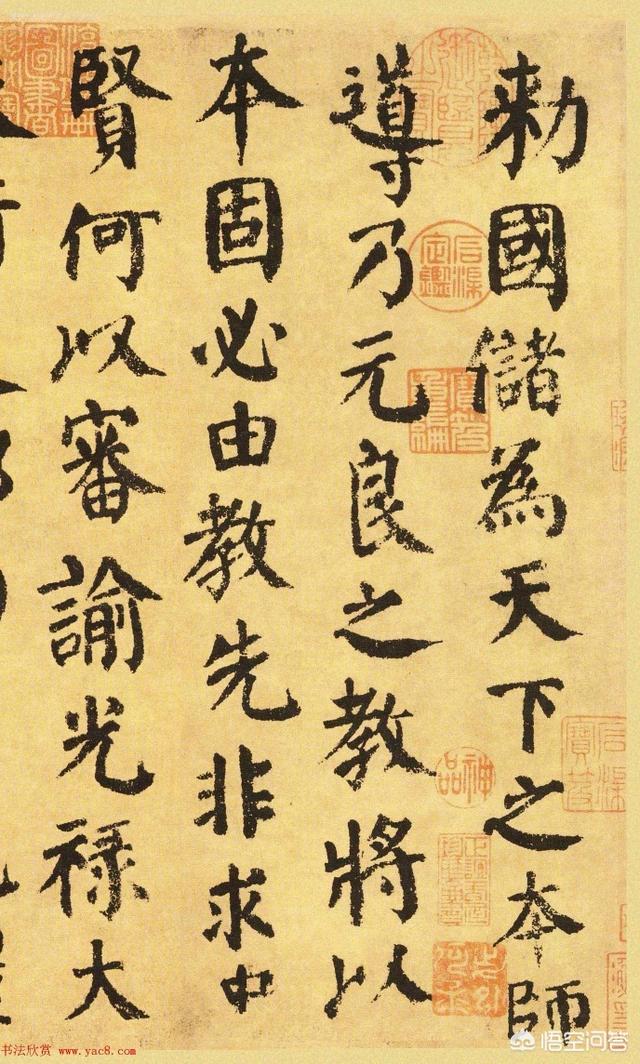 勅國儲為天下之本師
導乃元良之教將以
本固必由教先非求中
賢何以審諭光祿大
神品
书法欣赏 www.yac8.com
悟空问答